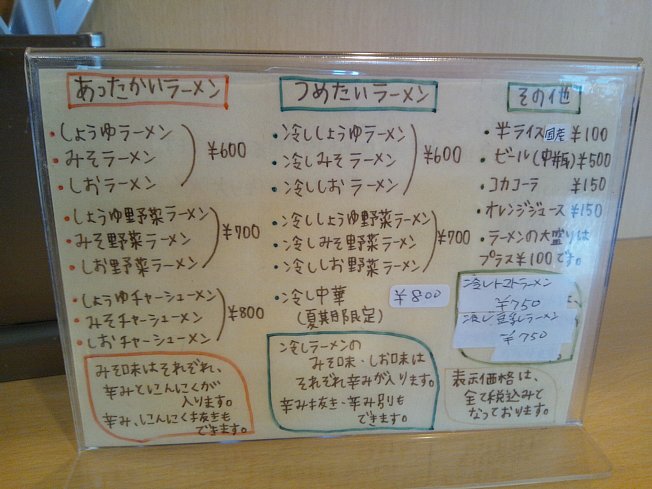 あったかいラーメン
・しょうゆラーメン
・みそラーメン
・しおラーメン
¥600
・しょうゆ野菜ラーメン
・みそ野菜ラーメン
・しお野菜ラーメン
¥700
・しょうゆチャーシューメン
・みそチャーシューメン
・しおチャーシューメン
¥800
みそ味はそれぞれ、
辛みとにんにくが
入ります。
辛み、にんにく抜きも
できます。
つめたいラーメン
・冷ししょうゆラーメン
・冷しみそラーメン
・冷ししおラーメン
¥600
・冷ししょうゆ野菜ラーメン
・冷しみそ野菜ラーメン
・冷ししお野菜ラーメン
¥700
・冷し中華 ¥800
(夏期限定)
冷しラーメンの
みそ味・しお味は
それぞれ辛みが入ります。
辛み抜き・辛み別りも
できます。
その他
・半ライス国産 ¥100
・ビール(中瓶) ¥500
・コカコーラ ¥150
・オレンジジュース ¥150
・ラーメンの大盛りは
プラス¥100です。
冷しトマトラーメン
¥750
冷し豆乳ラーメン
¥750
表示価格は、
全て税込みで
なっております。